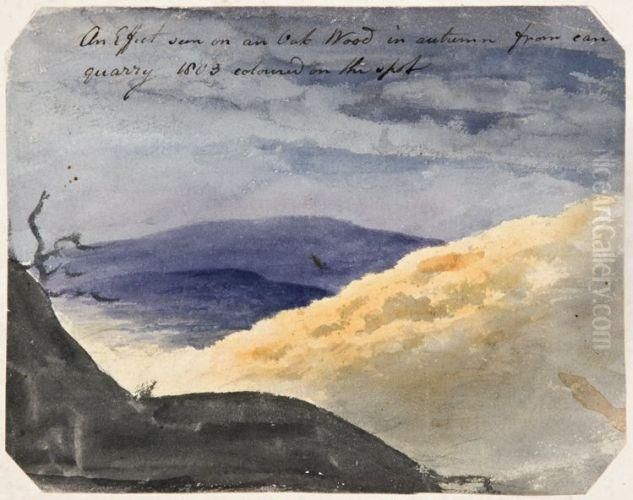 An Effect seen on an Oak Wood in autumn from
quarry 1803 coloured on the spot
NiceArtGallery.com